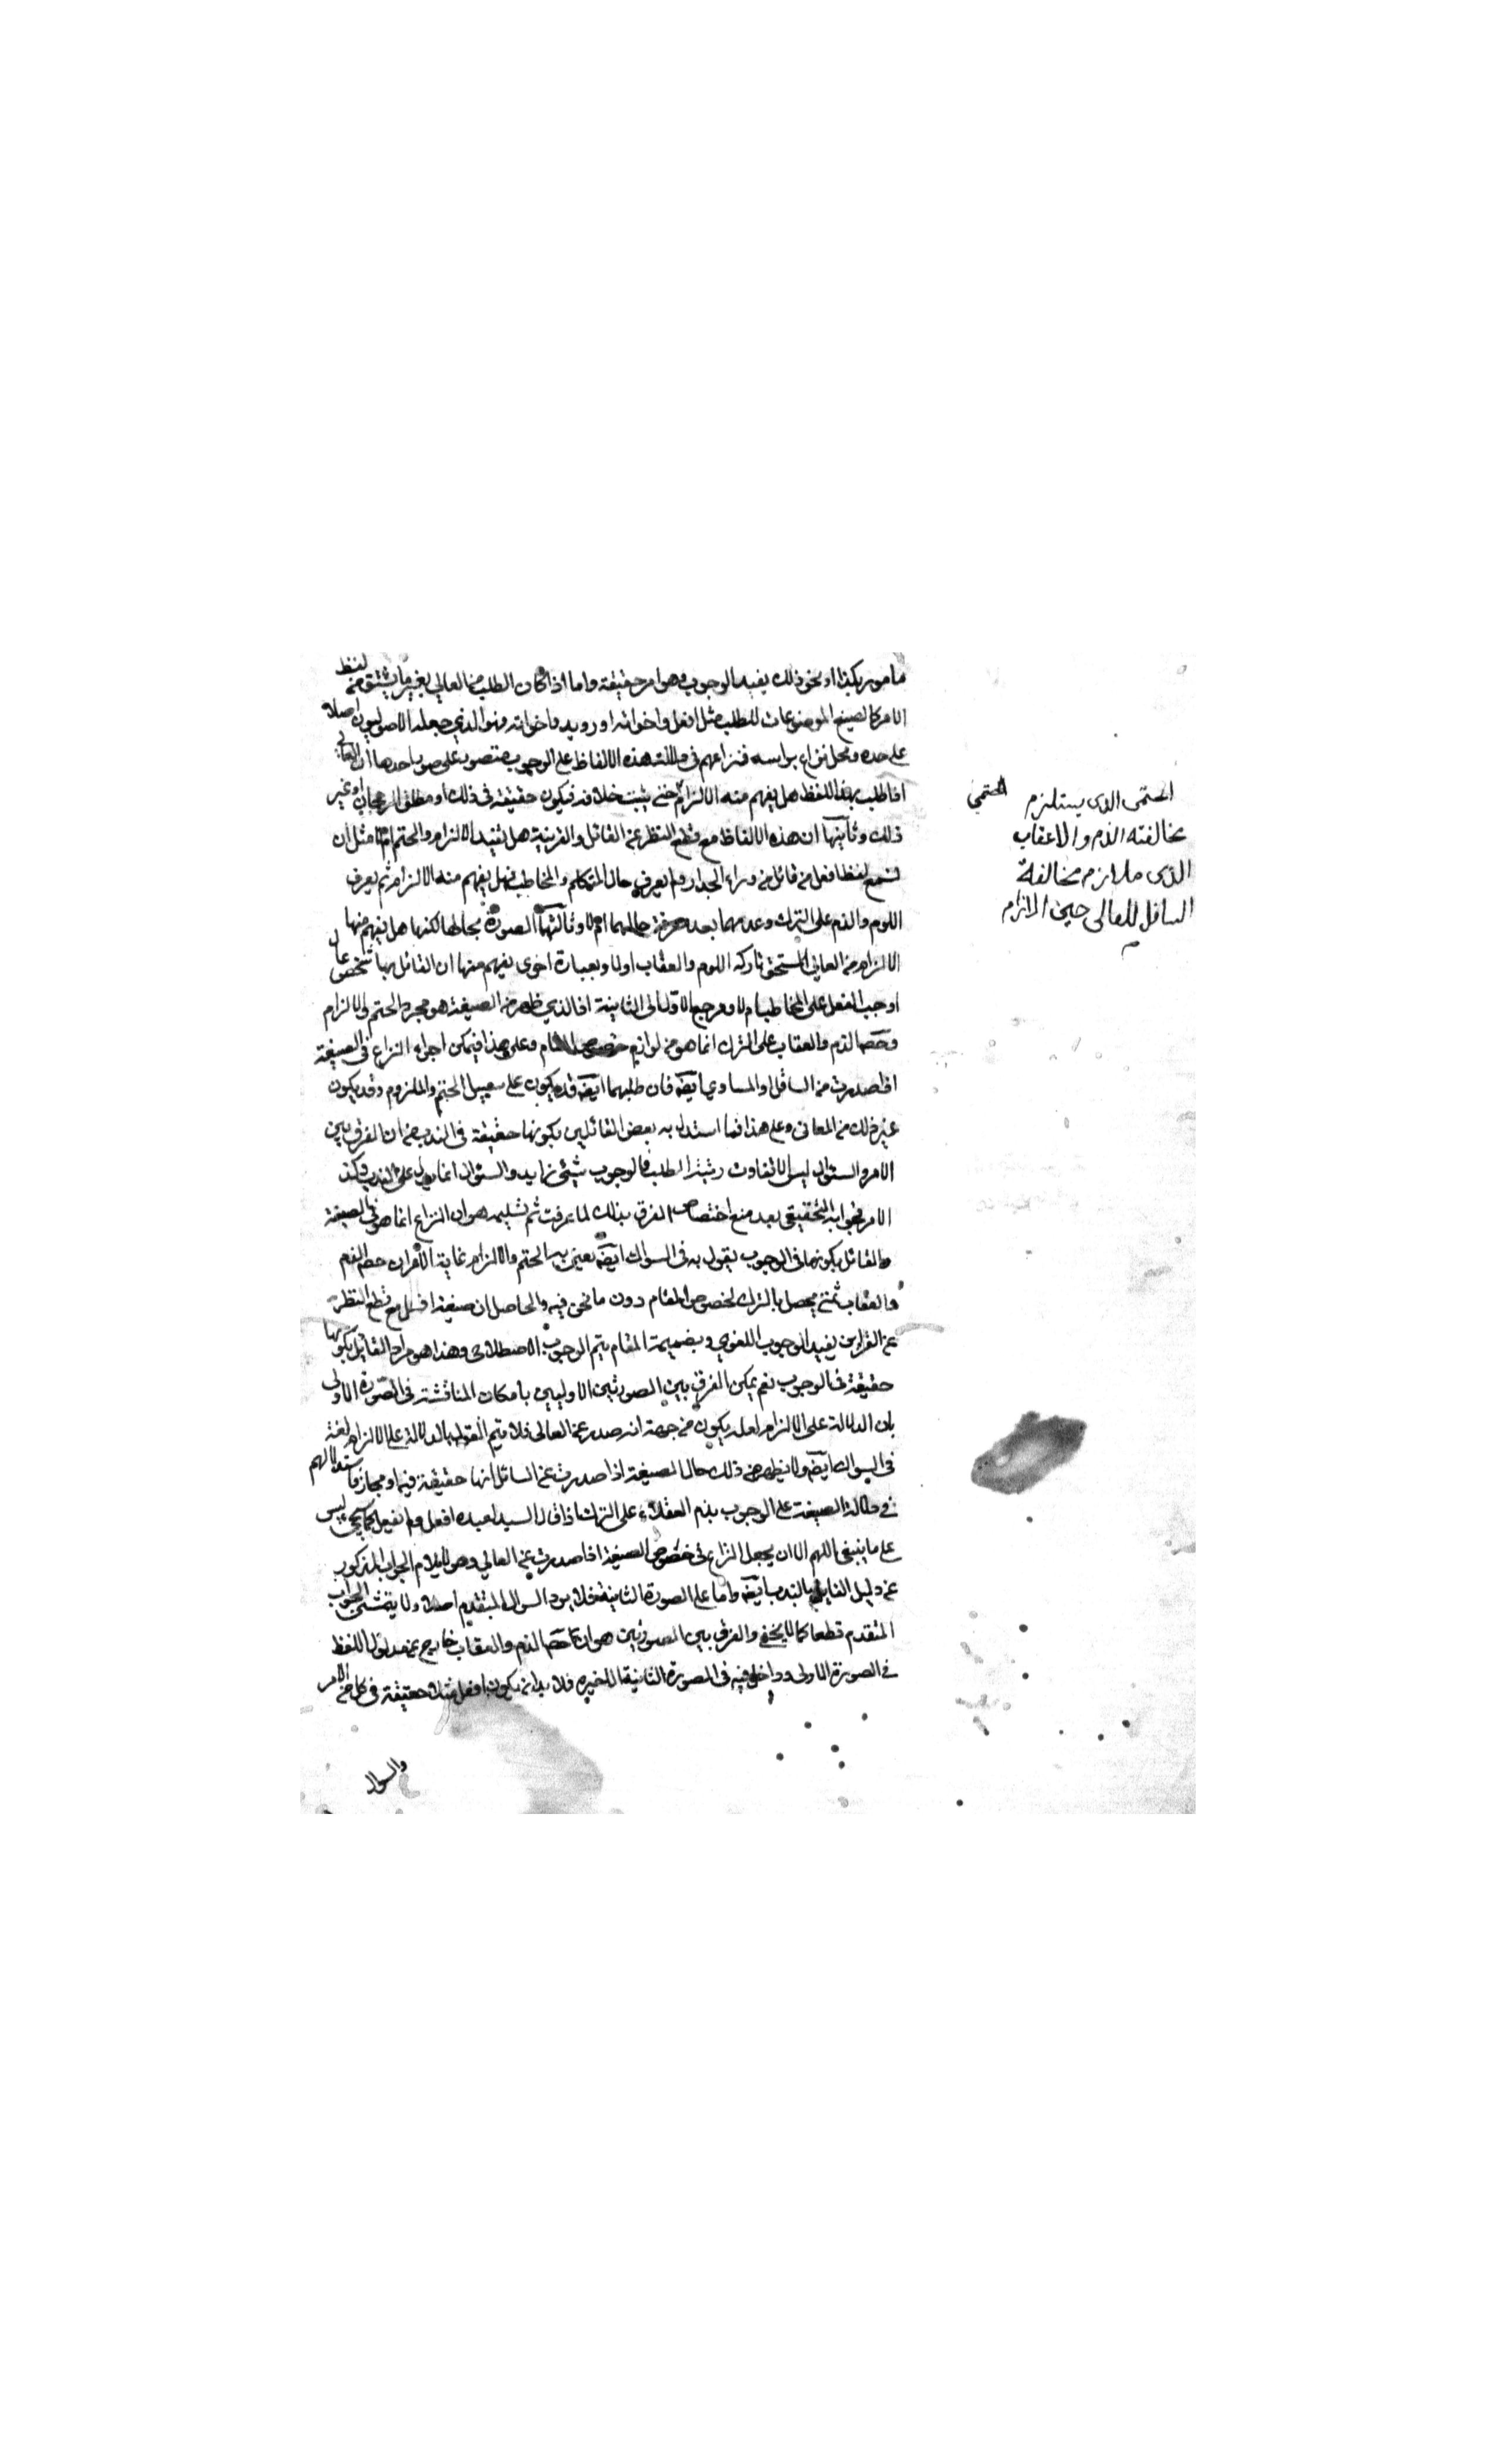 مامور بكذا او نحو ذلك يفيد الوجوب وهو امر حقيقة واما اذا كان الطلب من العالي بغير ما يشتق من لفظ
الامر كالصيغ الموضوعات للطلب مثل افعل واخواته او رويد واخواته فهو الذي جعله الاصوليون اصلا
على حده ومحل نزاع براسه فنزاعهم في دلالة هذه الالفاظ على الوجوب يتصور على صور احدها ان العالي
اذا طلب بهذا اللفظ هل يفهم منه الالزام حتى يثبت خلافه فيكون حقيقة في ذلك او مطلق الرجحان او غير
ذلك وثانيها ان هذه الالفاظ مع قطع النظر عن القائل والقرينة هل تفيد الالزام والحتم ام لا مثل ان
نسمع لفظ افعل من قائل من وراء الجدار ولم يعرف حال المتكلم والمخاطب فهل يفهم منه الالزام ثم يعرف
اللوم والذم على الترك وعدمهما بعد معرفة حالهما ام لا وثالثها الصورة بحالها لكنها هل يفهم منها
الالزام من العالي المستحق تاركه اللوم والعقاب اولا وبعبارة اخرى يفهم منها ان القائل بها شخص عال
اوجب الفعل على المخاطب ام لا ومرجع الاول الى الثانية اذ الذي ظهر من الصيغة هو مجرد الحتم والالزام
وحصه الذم والعقاب على الترك انما هو من لوازم خصوص المقام وعلى هذا فيمكن اجراء النزاع في الصيغة
اذا صدرت من السافل او المساوي ايضه فان طلبهما ايضه قد يكون على سبيل الحتم واللزوم وقد يكون
غير ذلك من المعانى وعلى هذا فما استدل به بعض القائلين بكونها حقيقة في الندب من ان الفرق بين
الامر والسئوال ليس الا تفاوت رتبة الطلب فالوجوب شيئ زايد والسئوال انما يدل على الندب فكذ
الامر فجوابه التحقيقى بعد منع اختصاص الفرق بذلك لما عرفت ثم تسليمه هو ان النزاع انما هو في الصيغة
والقائل بكونها في الوجوب يقول به في السوال ايضه يعني به الحتم والالزام غاية الامر ان حصه الذم
والعقاب يحصل بالترك لخصوص المقام دون ما نحن فيه والحاصل ان صيغة افعل مع قطع النظر
عن القراين يفيد الوجوب اللغوي وبضميمة المقام يتم الوجوب الاصطلاحى وهذا هو مراد القائل بكونها
حقيقة في الوجوب نعم يمكن الفرق بين الصورتين الاوليين بامكان المناقشة في الصورة الاولى
بان الدلالة على الالزام لعله يكون من جهة انه صدر عن العالى فلا يتم القول بالدلالة على الالزام لغة
في السوال ايضه ولا يظهر من ذلك حال الصيغة اذا صدرت عن السائل انها حقيقة فيه او مجاز فاستدلالهم
في دلالة الصيغة على الوجوب بذم العقلاء على الترك اذا قال السيد لعبده افعل ولم يفعل كما سيجيء ليس
على ما ينبغى اللهم الا ان يجعل النزاع في خصوص الصيغة اذا صدرت عن العالي وهو لا يلائم الجواب المذكور
عن دليل القائل بالندب ايضه واما على الصورة الثانية فلا يرد السوال المتقدم اصلا ولا يتمشى الجواب
المتقدم قطعا كما لا يخفى والفرق بين الصورتين هو ان حصه الذم والعقاب خارج عن مدلول اللفظ
في الصورة الاولى وداخل فيه في الصورة الثانية الاخيره فلا بد ان يكون افعل مثلا حقيقة في كل من الامر
والسوال
الحتمى الذى يستلزم الحتمي
مخالفته الذم والاعقاب
الذى ملازم مخالفة
السافل للعالى حين الالزام
م